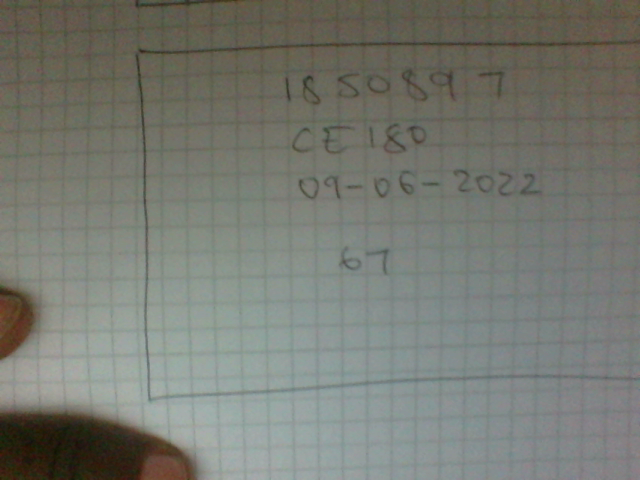 1850897
CE180
09-06-2022
67